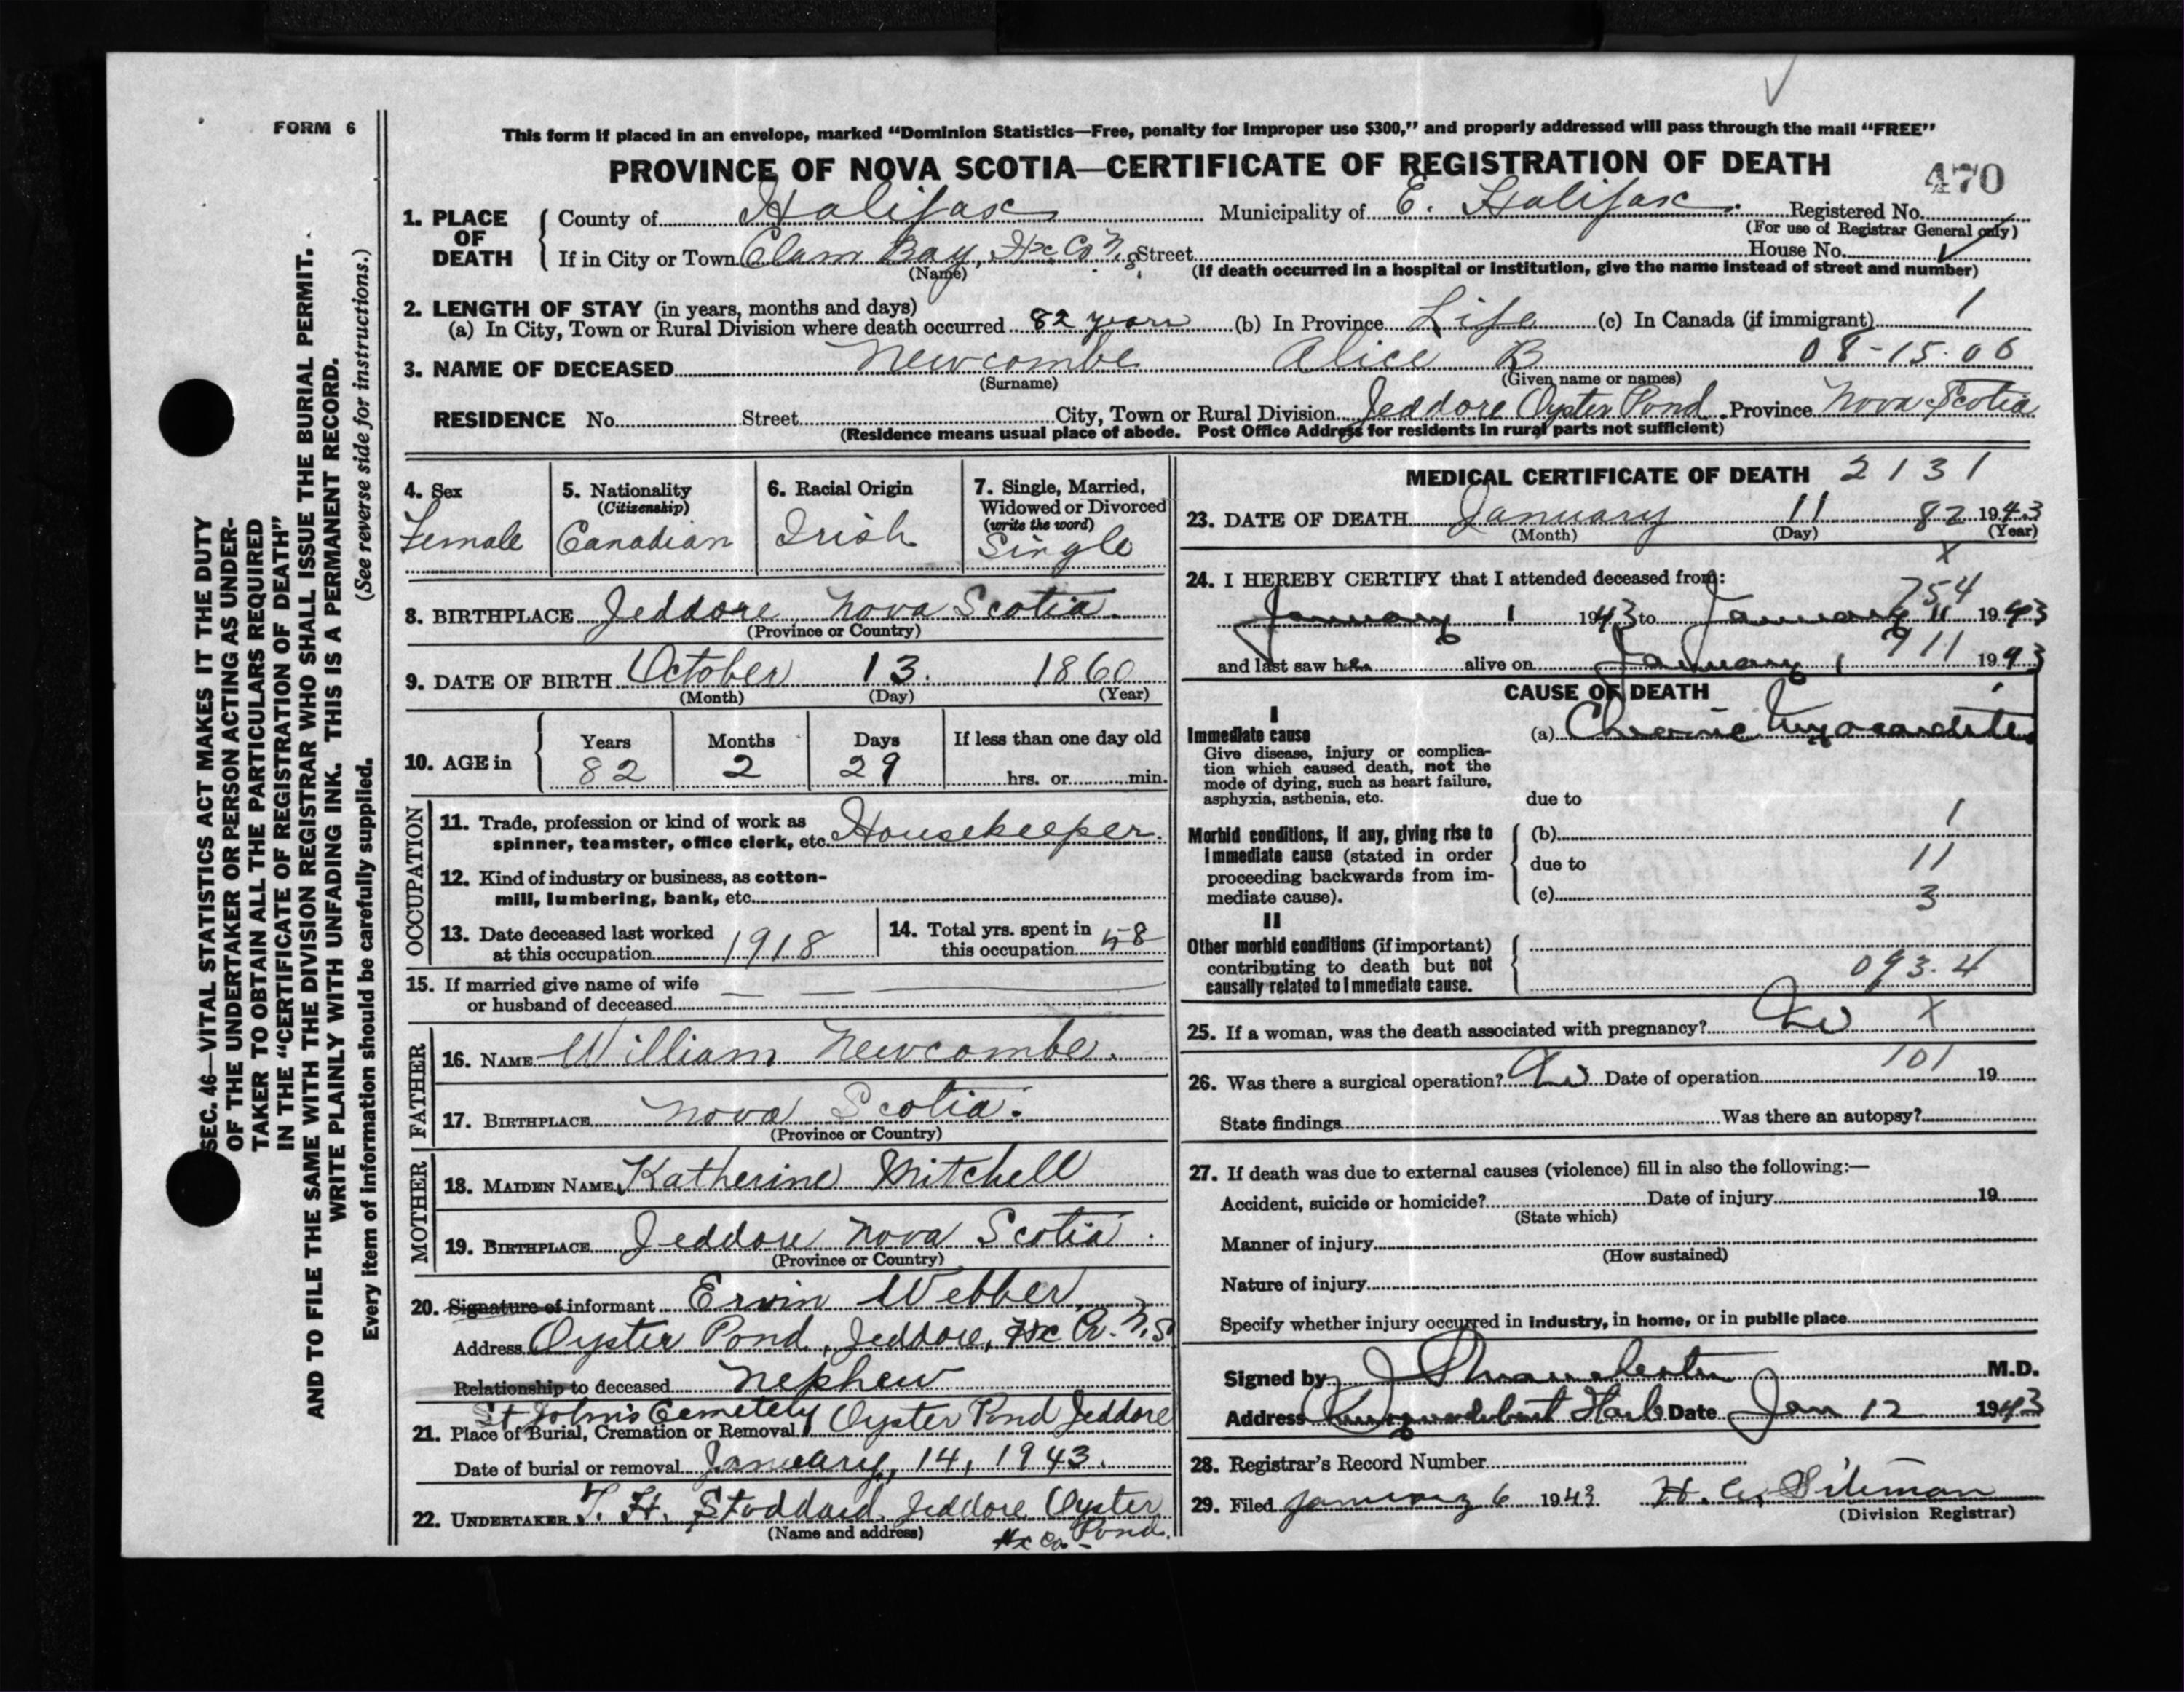 FORM 6
This form if placed in an envelope, marked “Dominion Statistics—Free, penalty for improper use $300,” and properly addressed will pass through the mail “FREE”
PROVINCE OF NOVA SCOTIA—CERTIFICATE OF REGISTRATION OF DEATH
470
1. PLACE OF DEATH
County of Halifax Municipality of E. Halifax Registered No.
(For use of Registrar General only)
If in City or Town Clam Bay, Hx. Co. N.S Street House No.
(Name) (If death occurred in a hospital or institution, give the name instead of street and number)
2. LENGTH OF STAY (in years, months and days)
(a) In City, Town or Rural Division where death occurred 82 years (b) In Province Life (c) In Canada (if immigrant) 1
3. NAME OF DECEASED Newcombe Alice B 08-15-06
(Surname) (Given name or names)
RESIDENCE No. Street City, Town or Rural Division Jeddore Oyster Pond Province Nova Scotia
(Residence means usual place of abode. Post Office Address for residents in rural parts not sufficient)
4. Sex
Female
5. Nationality
(Citizenship)
Canadian
6. Racial Origin
Irish
7. Single, Married,
Widowed or Divorced
(write the word)
Single
8. BIRTHPLACE Jeddore Nova Scotia.
(Province or Country)
9. DATE OF BIRTH October 13. 1860
(Month) (Day) (Year)
10. AGE in
Years Months Days If less than one day old
82 2 29 hrs. or min.
OCCUPATION
11. Trade, profession or kind of work as
spinner, teamster, office clerk, etc. Housekeeper.
12. Kind of industry or business, as cotton-
mill, lumbering, bank, etc.
13. Date deceased last worked
at this occupation 1918
14. Total yrs. spent in
this occupation 58
15. If married give name of wife
or husband of deceased
FATHER
16. NAME William Newcombe.
17. BIRTHPLACE Nova Scotia.
(Province or Country)
MOTHER
18. MAIDEN NAME Katherine Mitchell
19. BIRTHPLACE Jeddore Nova Scotia.
(Province or Country)
20. Signature of informant Ervin Webber
Address Oyster Pond, Jeddore, Hx Co. N.S
Relationship to deceased Nephew
St John's Cemetely Oyster Pond Jeddore
21. Place of Burial, Cremation or Removal
Date of burial or removal January, 14, 1943.
22. UNDERTAKER T. H. Stoddard Jeddore Oyster
(Name and address) Hx Co- Pond.
MEDICAL CERTIFICATE OF DEATH 2131
23. DATE OF DEATH January 11 82 1943
(Month) (Day) (Year)
x
24. I HEREBY CERTIFY that I attended deceased from:
754
January 1 1943 to January 11 1943
911
and last saw her alive on January 1 1943
CAUSE OF DEATH
I
Immediate cause
Give disease, injury or complica-
tion which caused death, not the
mode of dying, such as heart failure,
asphyxia, asthenia, etc.
(a) Chronic Myocarditis
due to
Morbid conditions, if any, giving rise to
immediate cause (stated in order
proceeding backwards from im-
mediate cause).
(b) 1
due to 11
(c) 3
II
Other morbid conditions (if important)
contributing to death but not
causally related to immediate cause.
093.4
25. If a woman, was the death associated with pregnancy? No X
26. Was there a surgical operation? No Date of operation 101 19
State findings Was there an autopsy?
27. If death was due to external causes (violence) fill in also the following:—
Accident, suicide or homicide? Date of injury 19
(State which)
Manner of injury
(How sustained)
Nature of injury
Specify whether injury occurred in industry, in home, or in public place
Signed by M.D.
Address Harb Date Jan 12 1943
28. Registrar's Record Number
29. Filed January 6 1943 H. Siteman
(Division Registrar)
SEC. 46—VITAL STATISTICS ACT MAKES IT THE DUTY
OF THE UNDERTAKER OR PERSON ACTING AS UNDER-
TAKER TO OBTAIN ALL THE PARTICULARS REQUIRED
IN THE “CERTIFICATE OF REGISTRATION OF DEATH”
AND TO FILE THE SAME WITH THE DIVISION REGISTRAR WHO SHALL ISSUE THE BURIAL PERMIT.
WRITE PLAINLY WITH UNFADING INK. THIS IS A PERMANENT RECORD.
Every item of information should be carefully supplied. (See reverse side for instructions.)